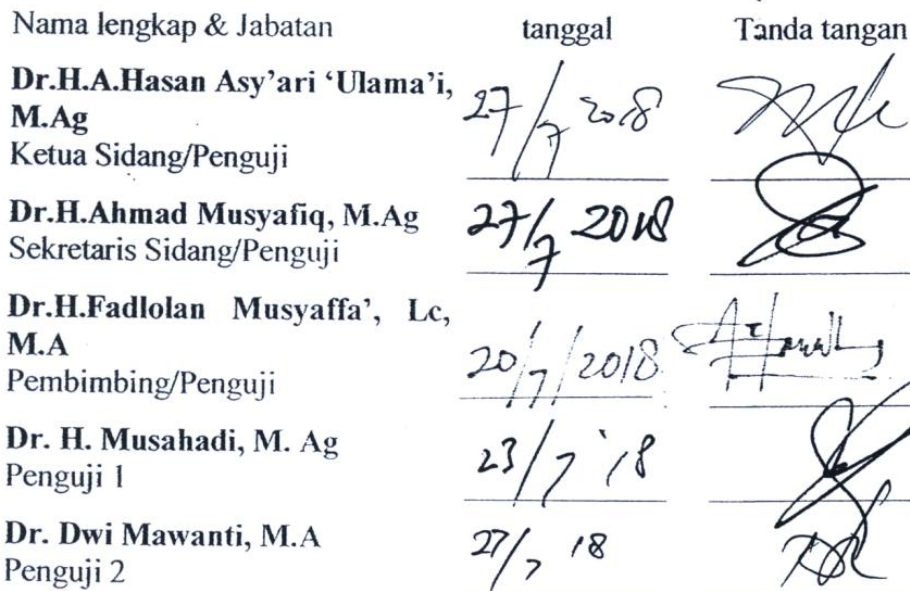 Nama lengkap & Jabatan tanggal Tanda tangan
Dr.H.A.Hasan Asy'ari 'Ulama'i,
M.Ag
Ketua Sidang/Penguji
27/7 2018
Dr.H.Ahmad Musyafiq, M.Ag
Sekretaris Sidang/Penguji
27/7 2018
Dr.H.Fadlolan Musyaffa', Lc,
M.A
Pembimbing/Penguji
20/7/2018
Dr. H. Musahadi, M. Ag
Penguji 1
23/7 '18
Dr. Dwi Mawanti, M.A
Penguji 2
27/7 18